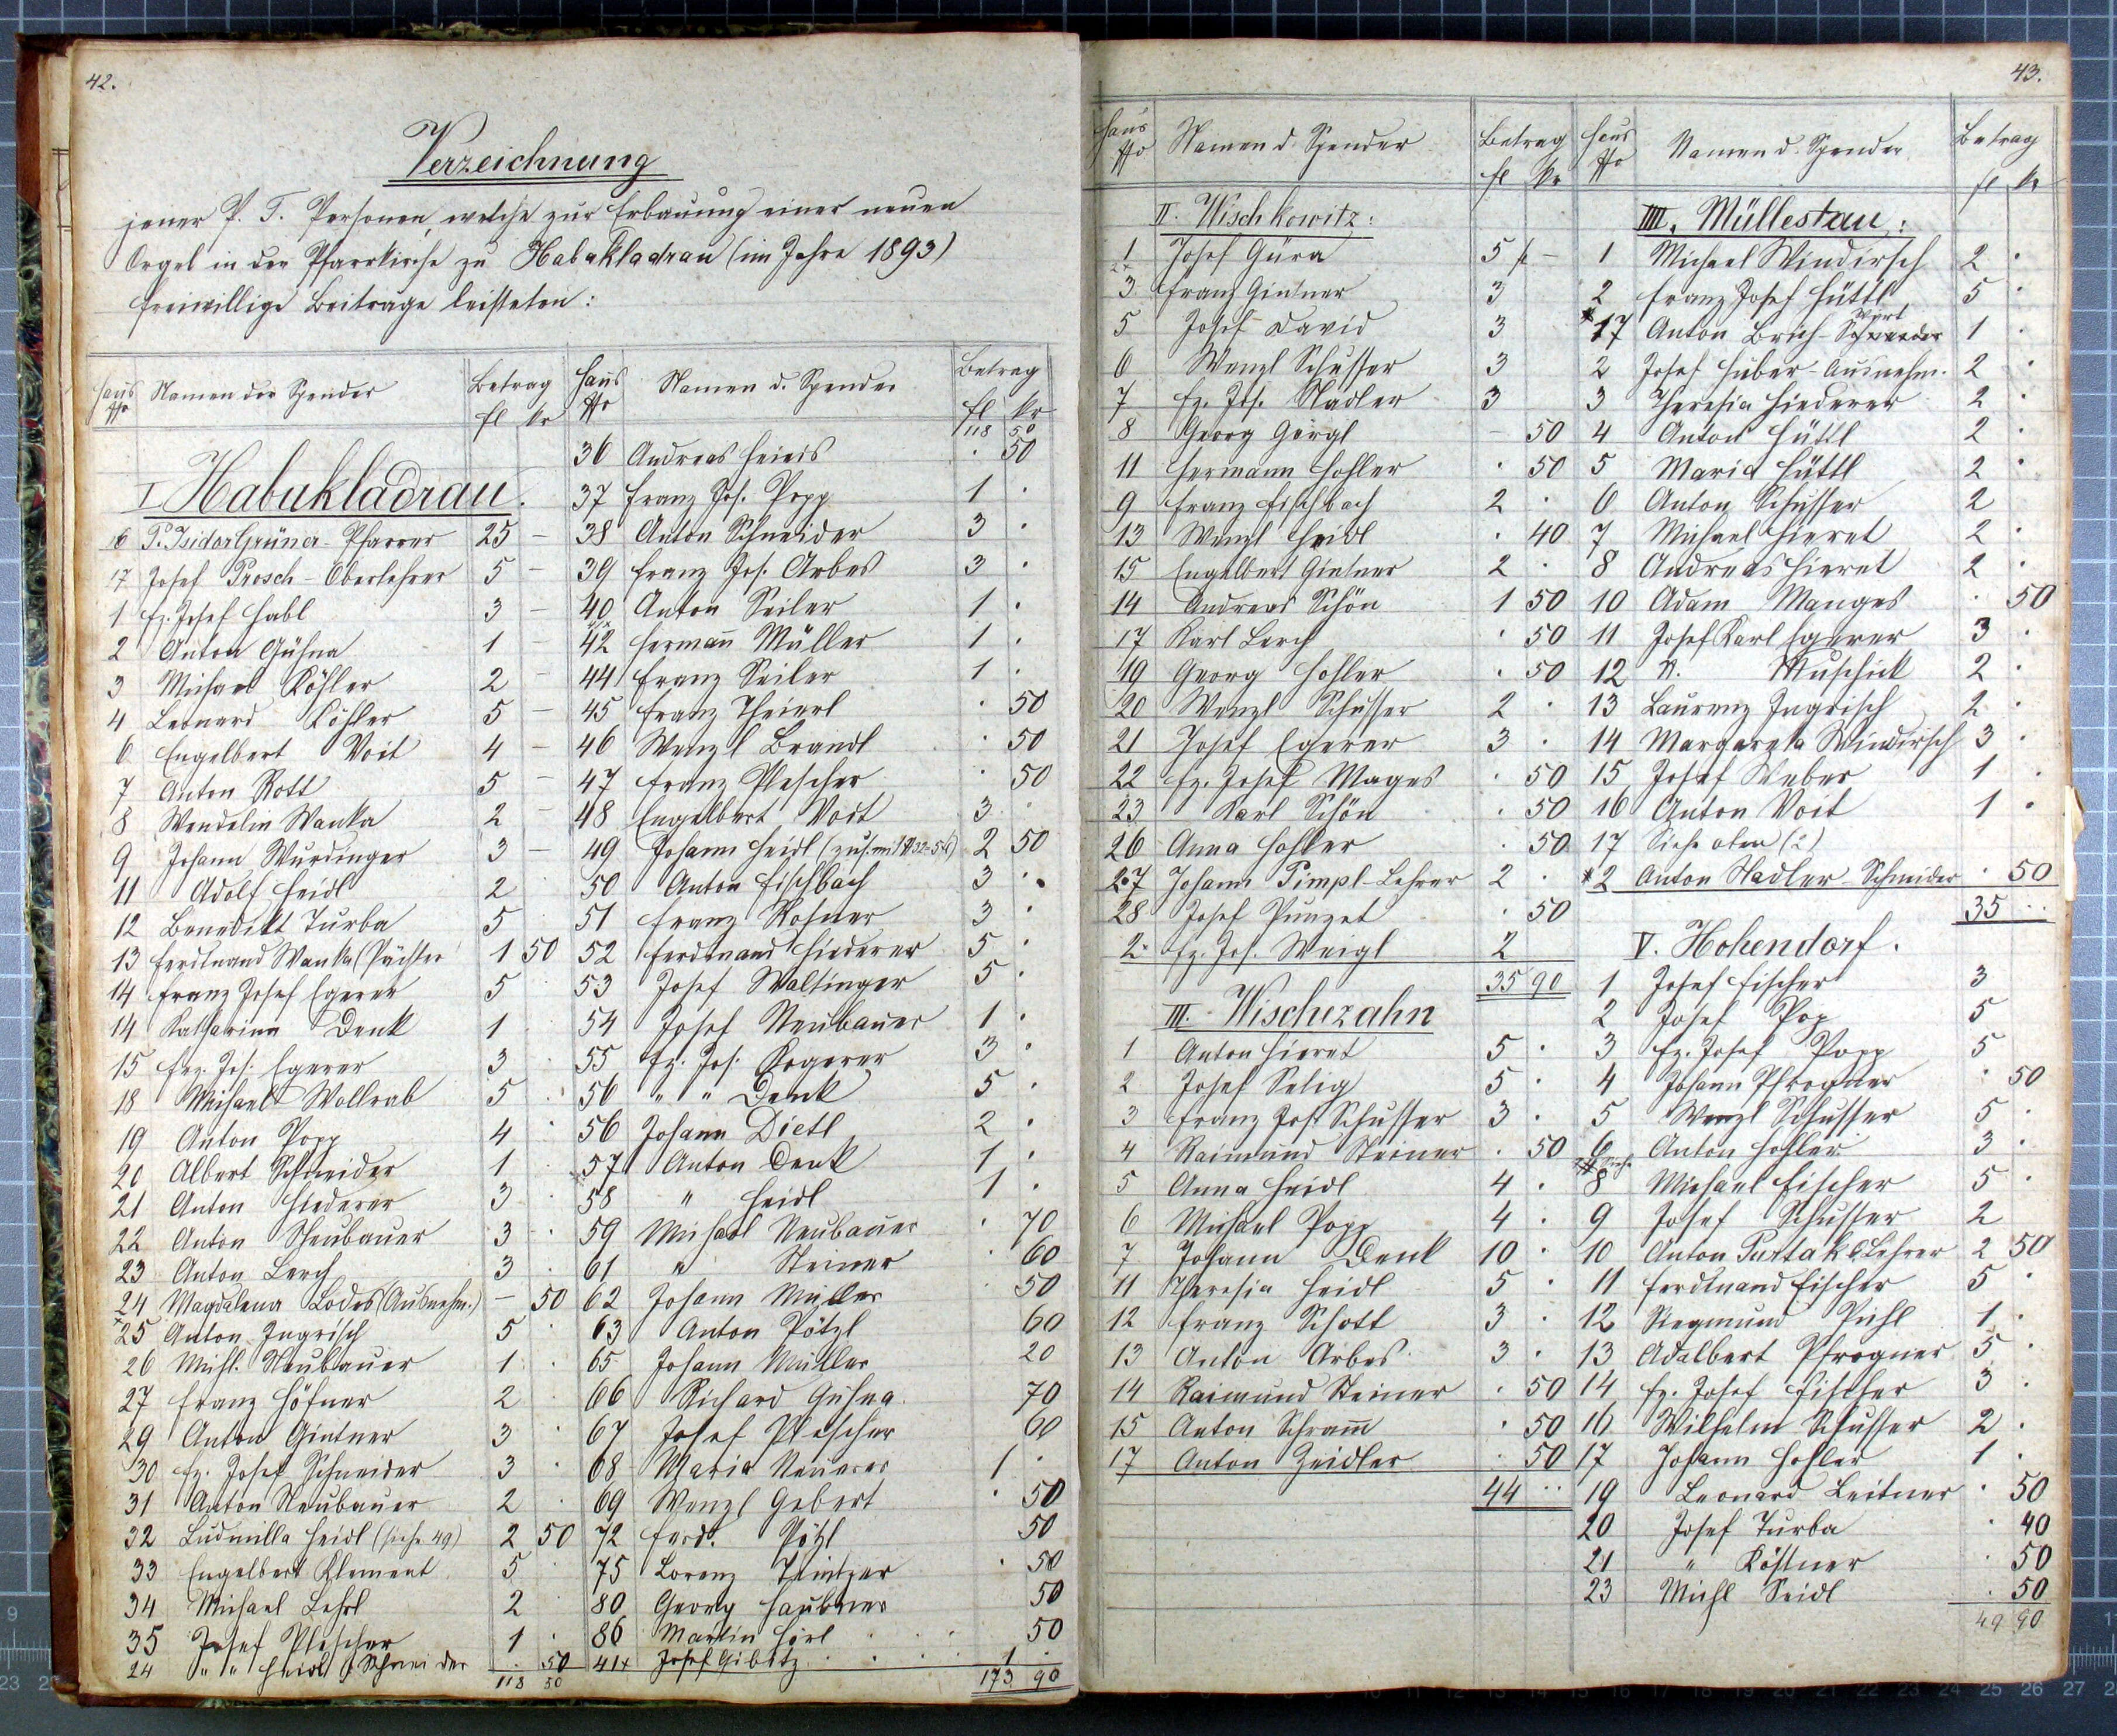 42.
Verzeichnung
jener P. T. Personen, welche zur Erbauung einer neuen
Orgel in der Pfarrkirche zu Habakladrau (im Jahre 1893)
freiwillige Beiträge leisteten:
Haus No Namen der Spender Betrag fl kr
I Habakladrau.
16 P. Isidor Grüner - Pfarrer 25 –
17 Josef Prosch - Oberlehrer 5 –
1 Fz. Josef Habl 3 –
2 Anton Gühna 1 –
3 Michael Köhler 2 –
4 Leonard Köhler 5 –
6 Engelbert Voit 4 –
7 Anton Rott 5 –
8 Wendelin Wanka 2 –
9 Johann Wurdinger 3 –
11 Adolf Heidl 2
12 Benedikt Turba 5
13 Ferdinand Wanka (Pächter 1 50
14 Franz Josef Egerer 5
14 Katharina Denk 1
15 Frz. Jos. Egerer 3
18 Michael Wollrab 5
19 Anton Popp 4
20 Albert Schneider 1
21 Anton Hiederer 3
22 Anton Neubauer 3
23 Anton Lerch 3
24 Magdalena Lodes (Ausnehm.) – 50
25 Anton Ingrisch 5
26 Michl. Neubauer 1
27 Franz Höfner 2
29 Anton Gintner 3
30 Fz. Josef Schneider 3
31 Anton Neubauer 2
32 Ludmilla Heidl (siehe 49) 2 50
33 Engelbert Klement 5
34 Michael Lehrl 2
35 Josef Plescher 1
24 " " Heidl Schneider . 50
118 50
Haus No Namen d. Spender Betrag fl kr
118 50
36 Andreas Heinis . 50
37 Franz Jos. Popp 1 .
38 Anton Schneider 3 .
39 Franz Jos. Arbes 3 .
40 Anton Seiler 1 .
42 Herman̄ Müller 1 .
44 Franz Seiler 1 .
45 Franz Theierl . 50
46 Wenzl Brandl . 50
47 Franz Plescher . 50
48 Engelbert Voit 3 .
49 Johann Heidl 2 50
50 Anton Fischbach 3 .
51 Franz Rosner 3 .
52 Ferdinand Hiederer 5 .
53 Josef Waltinger 5 .
54 Josef Neubauer 1 .
55 Fz. Jos. Kogerer 3 .
56 " " Denk 5 .
56 Johann Dietl 2 .
57 Anton Denk 1 .
58 " Heidl 1 .
59 Michael Neubauer . 70
61 " Steiner . 60
62 Johann Müller . 50
63 Anton Pötzl 60
65 Johann Müller 20
66 Richard Guhna 70
67 Josef Plescher 60
68 Maria Neuerer 1 .
69 Wenzl Gebert . 50
72 Ferd. Pötzl 50
75 Lorenz . 50
80 Georg Haubner 50
86 Martin Hörl 50
41+ Josef Gibitz 1 .
173 90
43.
Haus No Namen d. Spender Betrag fl kr
II. Wischkowitz:
1 Josef Güra 5 fl –
3 Franz Gintner 3
5 Josef David 3
6 Wenzl Schusser 3
7 Fz. Jos. Nadler 3
8 Georg Görgl – 50
11 Hermann Hohler . 50
9 Franz Fischbach 2 .
13 Wenzl Heidl . 40
15 Engelbert Gintner 2 .
14 Andreas Schön 1 50
17 Karl Lerch . 50
19 Georg Hohler . 50
20 Wenzl Schusser 2 .
21 Josef Egerer 3 .
22 Fz. Josef Mages . 50
23 Karl Schön . 50
26 Anna Hohler . 50
27 Johann Pimpl - Lehrer 2 .
28 Josef Punzet . 50
2. Fz. Jos. Weigl 2
35 90
III. Wischezahn
1 Anton Hieret 5 .
2 Josef Selig 5 .
3 Franz Jos. Schusser 3 .
4 Raimund Steiner . 50
5 Anna Heidl 4 .
6 Michael Popp 4 .
7 Johann Denk 10 .
11 Theresia Heidl 5 .
12 Franz Schott 3 .
13 Anton Arbes 3 .
14 Raimund Steiner . 50
15 Anton Schram̄ . 50
17 Anton Zeidler . 50
44 ..
Haus No Namen d. Spender Betrag fl kr
IIII. Müllestau:
1 Michael Windirsch 2 .
2 Franz Josef Hüttl 5 .
*17 Anton Brich - Schneider Wirt 1 .
2 Josef Huber - Ausnehm. 2 .
3 Theresia Hiederer 2 .
4 Anton Hüttl 2 .
5 Maria Hüttl 2 .
6 Anton Schusser 2
7 Michael Hieret 2 .
8 Andreas Hieret 2 .
10 Adam Manges . 50
11 Josef Karl Egerer 3 .
12 N. Muschick 2 .
13 Laurenz Ingrisch 2 .
14 Margareta Windirsch 3 .
15 Josef Weber 1 .
16 Anton Voit 1 .
17 Siehe oben
*2 Anton Nadler - Schneider . 50
35 ..
V. Hohendorf.
1 Josef Fischer 3
2 Josef Pop 5
3 Fz. Josef Popp 5
4 Johann Pfrogner . 50
5 Wenzl Schusser 5 .
6 Anton Hohler 3 .
8 Michael Fischer 5 .
9 Josef Schusser 2
10 Anton Partak Lehrer 2 50
11 Ferdinand Fischer 5 .
12 Siegmund Pichl 1 .
13 Adalbert Pfrogner 5 .
14 Fz. Josef Fischer 3 .
16 Wilhelm Schusser 2 .
17 Johann Hohler 1 .
19 Leonard Leitner . 50
20 Josef Turba . 40
21 " Köstner . 50
23 Michl Seidl . 50
49 90